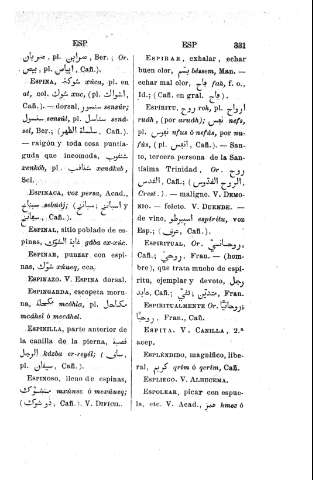 ESP
ESP
331
pl. صوابن, Ber.; Or.
pl. بيبس, Cañ.).
ESPINA, شوكة xúca, pl. en
at, col. شوك xuc, (pl. اشواك,
Cañ.). — dorsal, سنسور sensúr;
سنسول sensúl, pl. سناسل sená-
sel, Ber.; (سلسلة الظهر, Cañ.).
— raigón y toda cosa puntia-
guda que incomoda, شنقوب
xenkób, pl. شناقب xenákeb,
Scl.
ESPINACA, voz persa, Acad.,
selmáj; (سبانخ y اسبانخ,
Cañ.).
ESPINAL, sitio poblado de es-
pinas, غابة الشوك gába ex-xúc.
ESPINAR, punzar con espi-
nas, شوك xáueq, cca.
ESPINAZO. V. ESPINA dorsal.
ESPINGARDA, escopeta moru-
na, مكحلة mcóhla, pl. مكاحل
mcáhel ó mcedhel.
ESPINILLA, parte anterior de
la canilla de la pierna, قصبة
الرجل kázba er-reyél; (ساق,
pl. سيقان, Cañ.).
ESPINOSO, lleno de espinas,
مشوك mxáuec ó mexáueq;
(ذو شوك, Cañ.). V. DIFÍCIL.
ESPIRAR, exhalar, echar
buen olor, نسم béssem, Man. —
echar mal olor, فاح fah, f. o.,
Id.; (Cañ. en gral. فاح).
ESPÍRITU, روح roh, pl. ارواح
rudh, (por aruáh); نفس nefs,
pl. نفوس nfus ó nefús, por nu-
fús, (pl. انفس, Cañ.). — San-
to, tercera persona de la San-
tísima Trinidad, Or. روح
القدس; (الروح القدّوس, Cañ.;
Crest.). — maligno. V. DEMO-
NIO. — foleto. V. DUENDE. —
de vino, اسبيرطو espíritu, voz
Esp.; (عرق, Cañ.).
ESPIRITUAL, Or. روحاني,
Cañ.; روحي, Fran. — (hom-
bre), que trata mucho de espí-
ritu, ejemplar y devoto, رجل
عابد, Cañ.; متدين, تقي, Fran.
ESPIRITUALMENTE Or. روحانيًا,
روحيًا, Fran., Cañ.
ESPITA. V. CANILLA, 2.ª
acep.
ESPLÉNDIDO, magnífico, libe-
ral, كريم qrim ó qerím, Cañ.
ESPLIEGO. V. ALHUCEMA.
ESPOLEAR, picar con espue-
la, etc. V. Acad., همز hmez ó